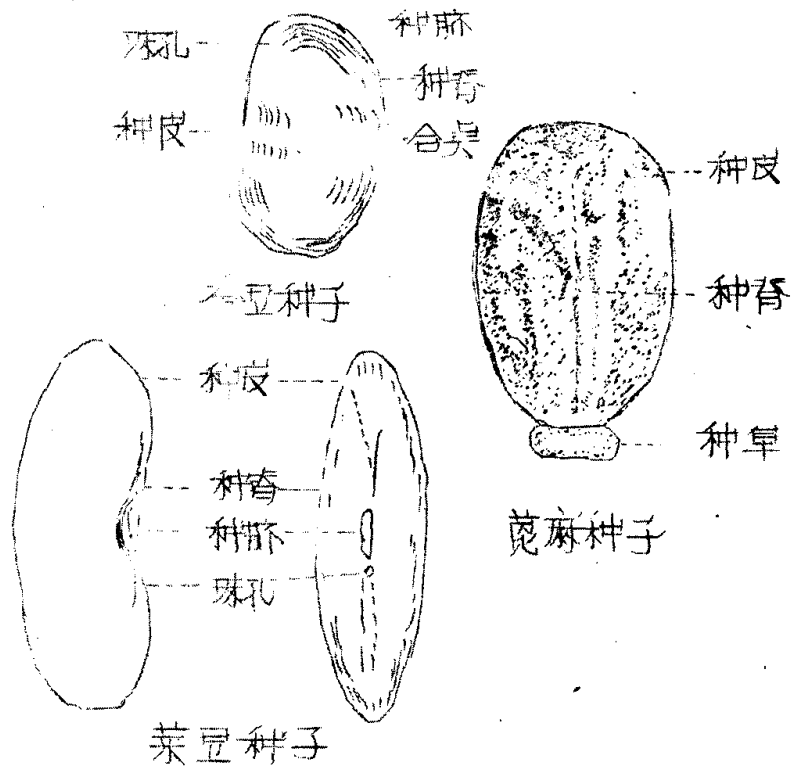 珠孔
种脐
种脊
种皮
合点
豆种子
种皮
种脊
种阜
蓖麻种子
种皮
种脊
种脐
珠孔
菜豆种子